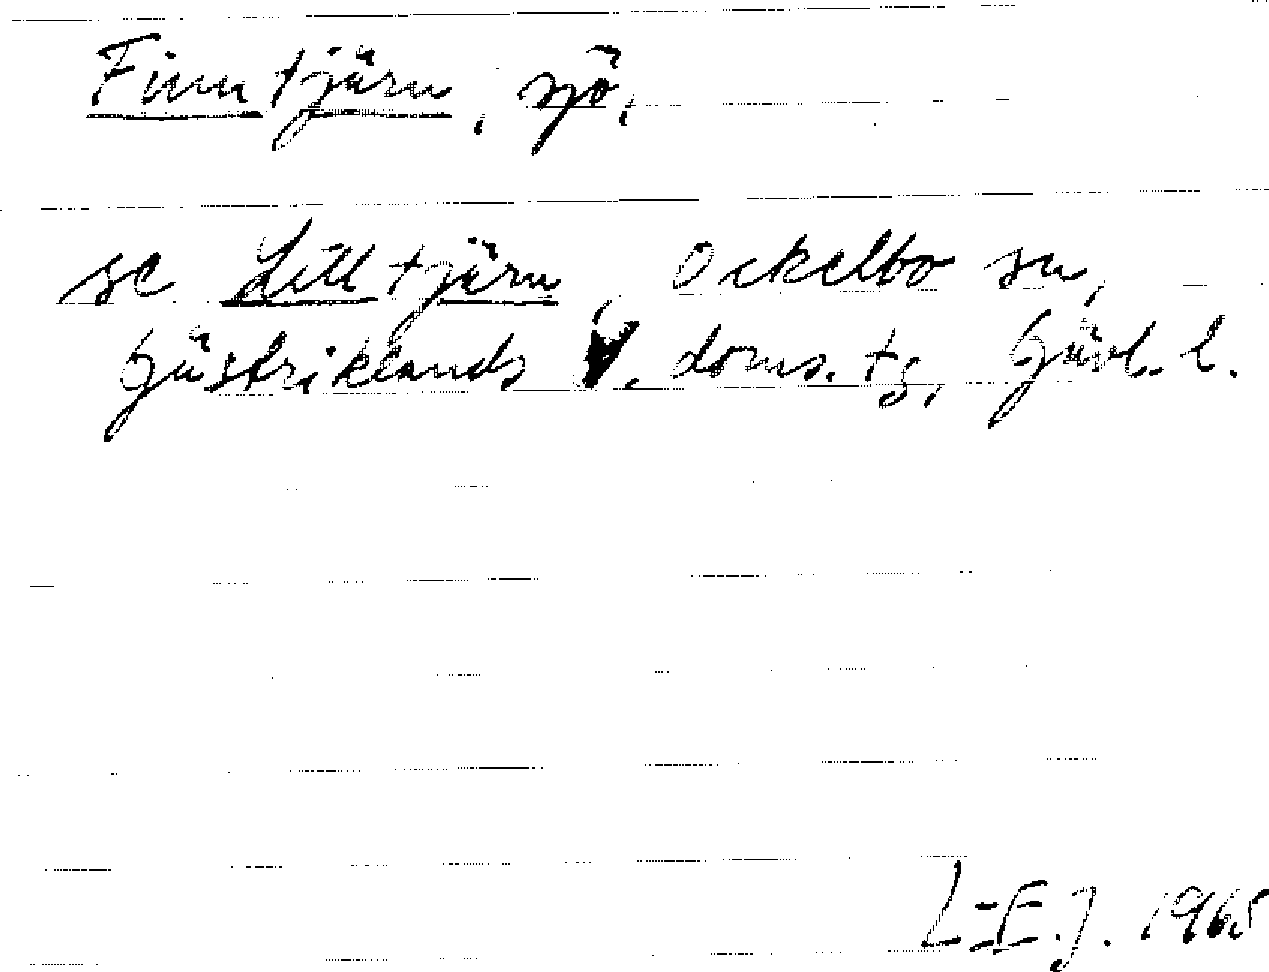 Finntjärn, sjö,
se Lilltjärn, Ockelbo sn,
Gästriklands V. doms. tg, Gävl. l.
L-E.J. 1965